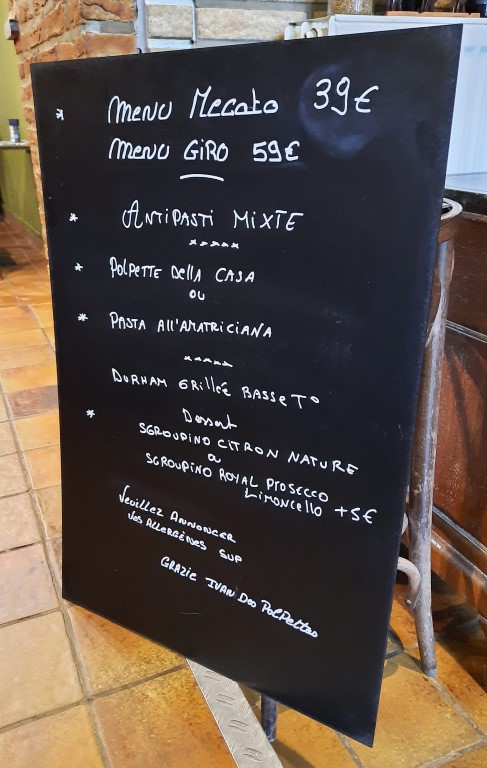 * MENU Mercato 39€
MENU GIRO 59€
* ANTIPASTI MIXTE
*****
* POLPETTE DELLA CASA
OU
* PASTA ALL'AMATRICIANA
*****
DURHAM GRILLÉE BASSE T°
* Dessert
SGROUPINO CITRON NATURE
SGROUPINO ROYAL PROSECCO
LIMONCELLO +5€
Veuillez ANNONCER
VOS ALLERGÈNES SVP
GRAZIE IVAN Dos Polpettos